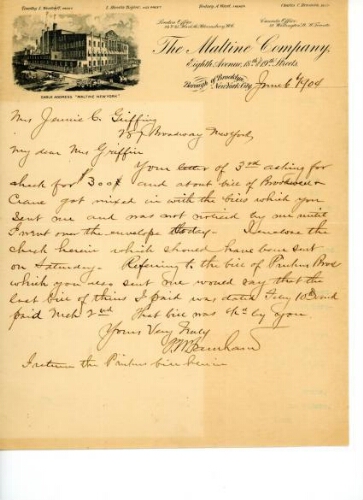 Timothy L. Woodruff,
London Office:
Canada Office:
The Maltine Company,
Eighth Avenue, 18th & 19th Streets,
Borough of Brooklyn,
New York City,
June 6th 1904
CABLE ADDRESS, "MALTINE NEW YORK."
Mrs Jennie C. Griffing
Broadway New York
My dear Mrs Griffin
Your letter of 3rd asking for
check for $300 and about bill of
Crane got mixed in with the bills which you
sent me and was not noticed by me until
I went over the envelope today. I enclose the
check herein which should have been sent
on Saturday. Referring to the bill of Bros
which you also sent me would say that the
last bill of theirs I paid was dated Feby 10th and
paid Mch 2nd. That bill was by you.
Yours Very Truly
I return the bill herein